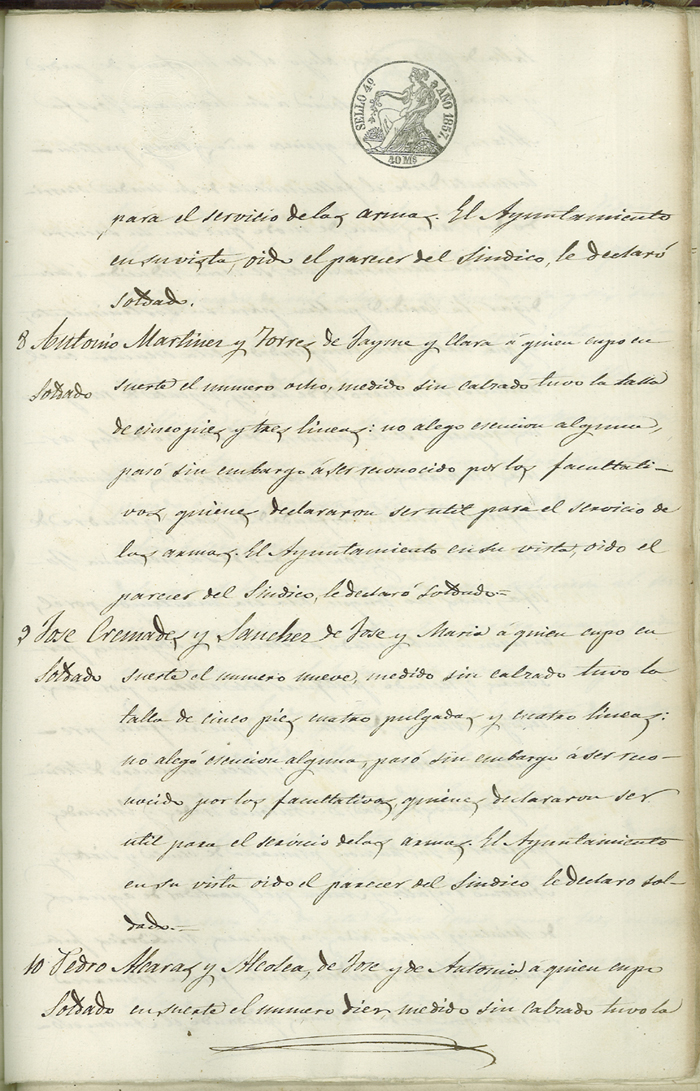 SELLO 4º AÑO 1857.
40 Mˢ
para el servicio de las armas. El Ayuntamiento
en su vista, oido el parecer del Sindico, le declaró
soldado.
8 Antonio Martinez y Torres de Jayme y Clara á quien cupo en
Soldado suerte el numero ocho, medido sin calzado tuvo la talla
de cinco pies y tres lineas: no alego esencion alguna,
pasó sin embargo á ser reconocido por los facultati-
vos, quienes declararon ser util para el servicio de
las armas. El Ayuntamiento en su vista, oido el
parecer del Sindico, le declaró soldado=
9 Jose Cremades y Sanchez de Jose y Maria á quien cupo en
Soldado suerte el numero nueve, medido sin calzado tuvo la
talla de cinco pies cuatro pulgadas y cuatro lineas:
no alegó esencion alguna, pasó sin embargo á ser reco-
nocido por los facultativos, quienes declararon ser
util para el servicio de las armas. El Ayuntamiento
en su vista oido el parecer del Sindico le declaro sol-
dado.=
10 Pedro Alcaraz y Alcolea, de Jose y de Antonia á quien cupo
Soldado en suerte el numero diez, medido sin calzado tuvo la